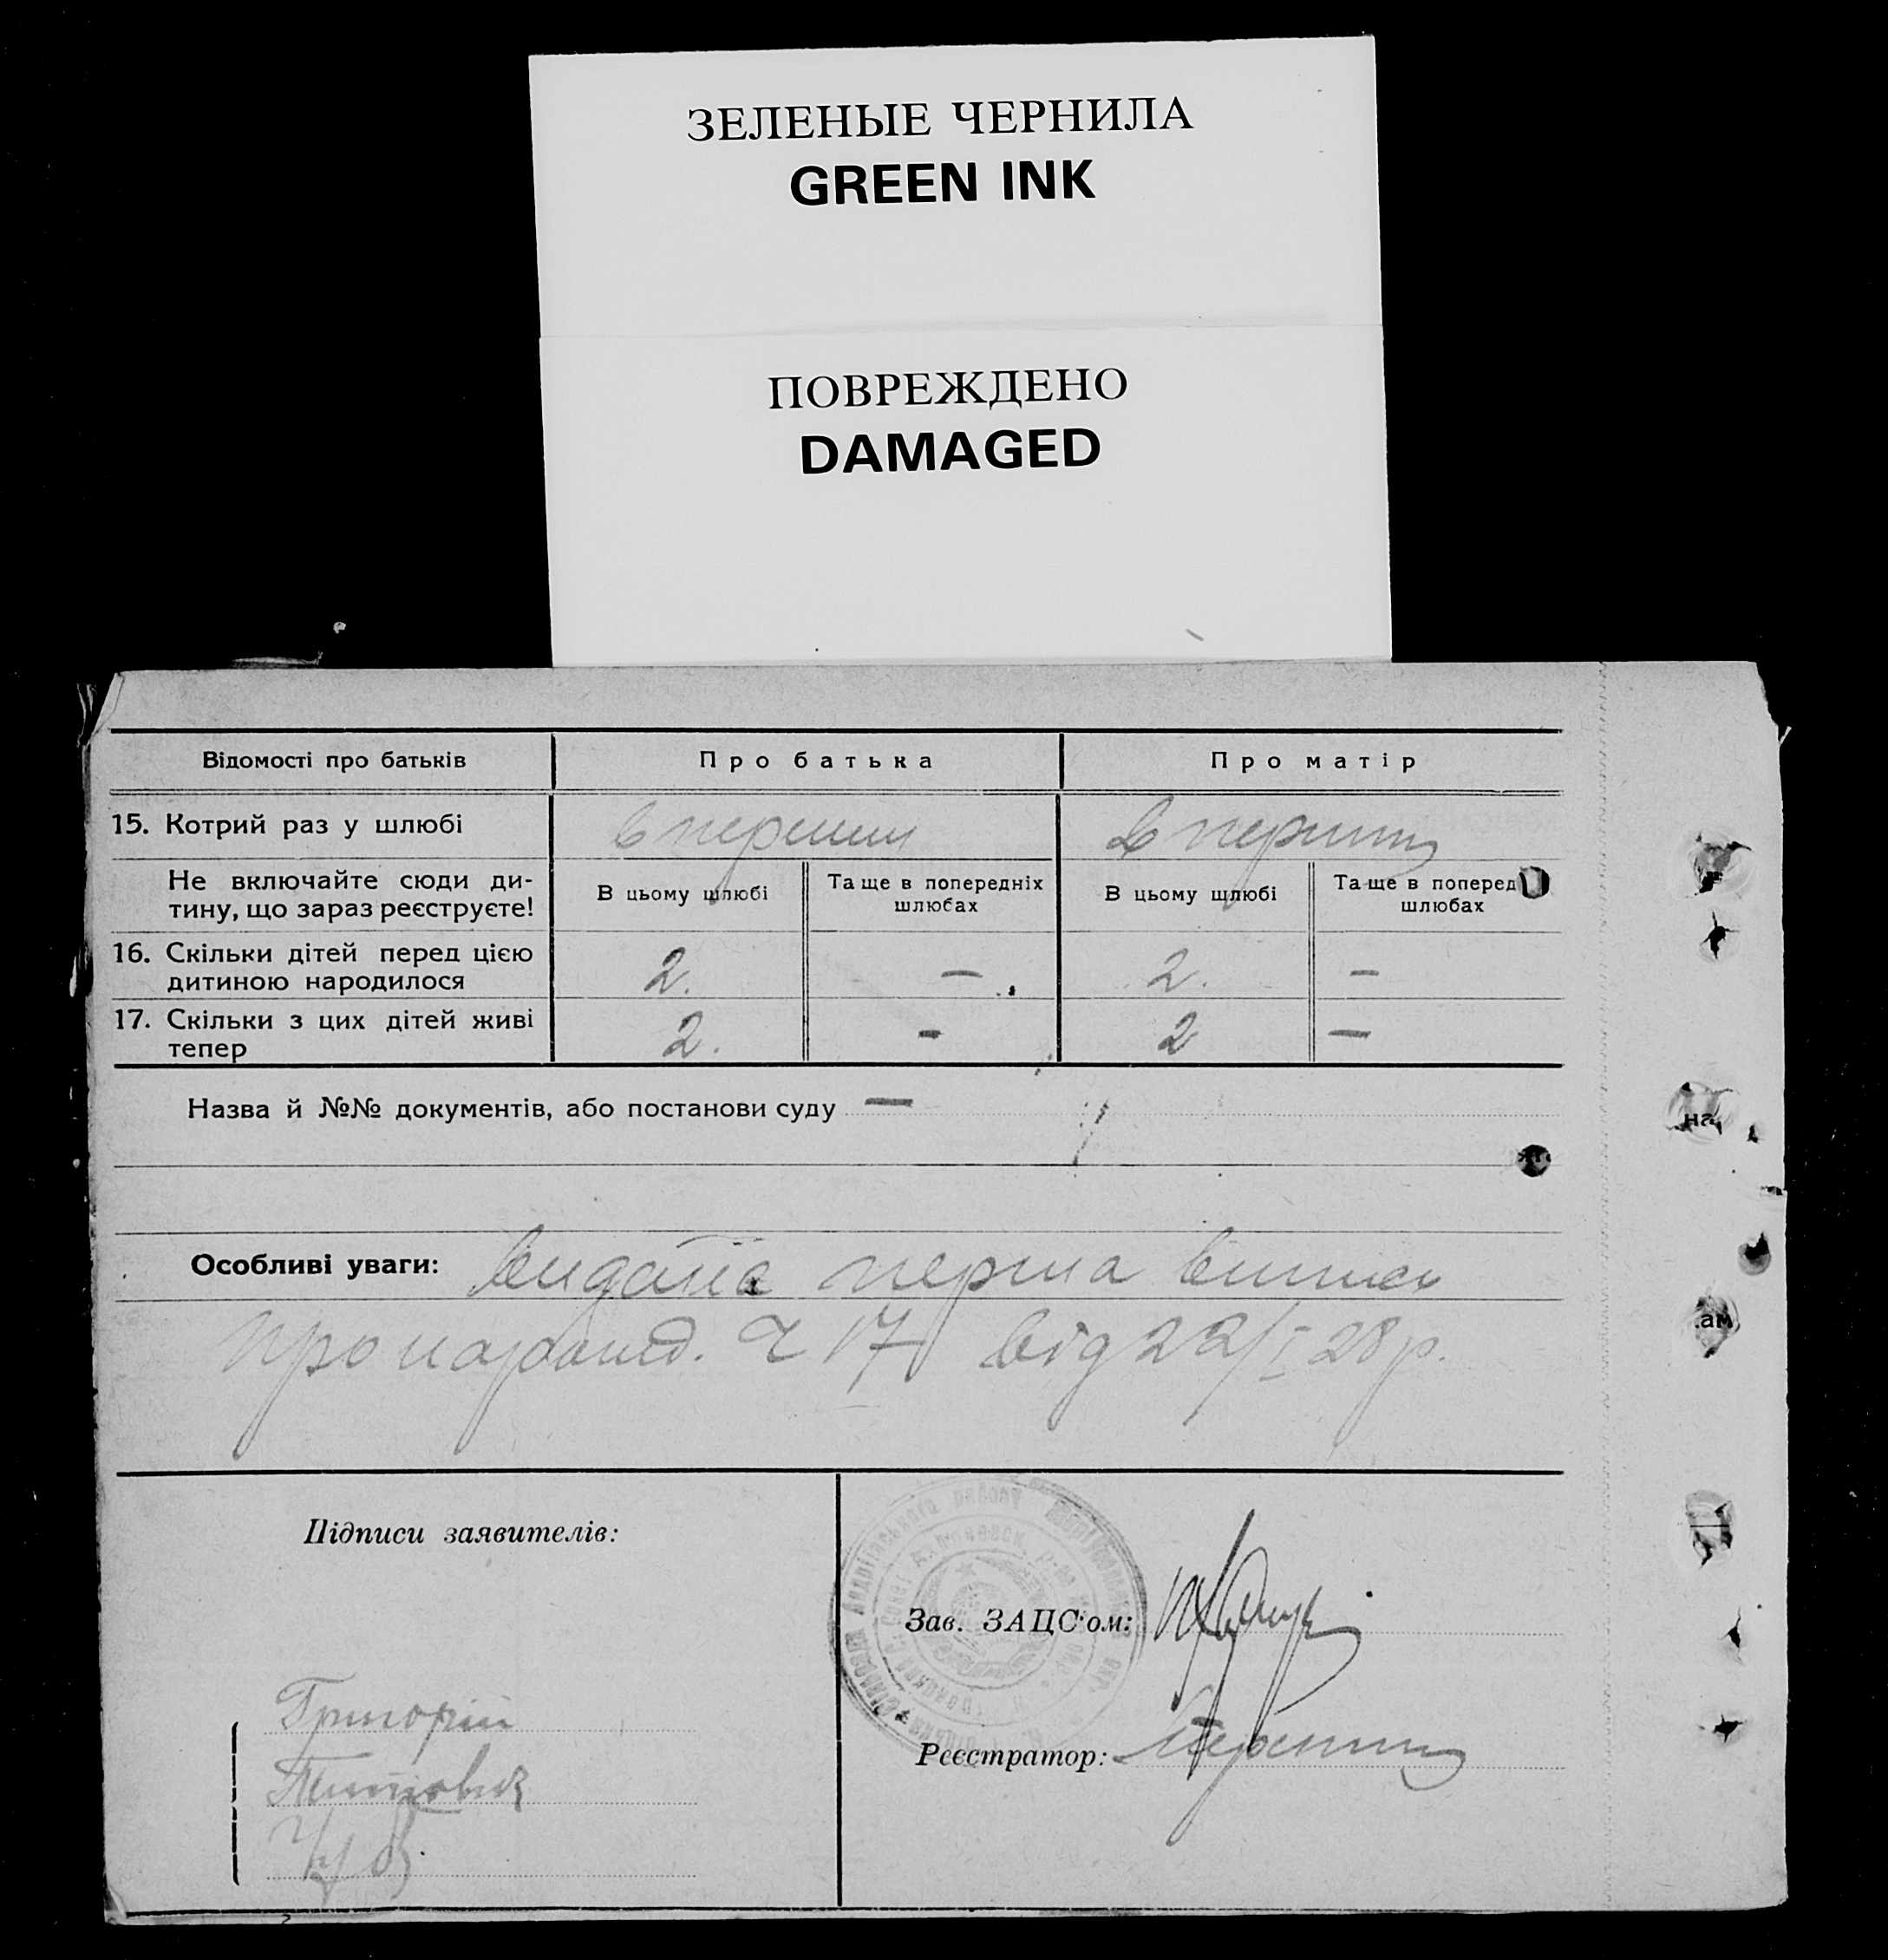 ЗЕЛЕНЫЕ ЧЕРНИЛА
GREEN INK
ПОВРЕЖДЕНО
DAMAGED
Відомості про батьків Про батька Про матір
15. Котрий раз у шлюбі вперший вперший
Не включайте сюди ди-
тину, що зараз реєструєте!
В цьому шлюбі
Та ще в попередніх
шлюбах
В цьому шлюбі
Та ще в поперед
шлюбах
16. Скільки дітей перед цією
дитиною народилося 2. — 2. —
17. Скільки з цих дітей живі
тепер 2. - 2 —
Назва й №№ документів, або постанови суду —
на
ям
Особливі уваги: видана перша випись
про народж. Ч 17 від 22/I 28 р.
Підписи заявителів:
Зав. ЗАЦС'ом:
Григорій
Реєстратор:
Титович